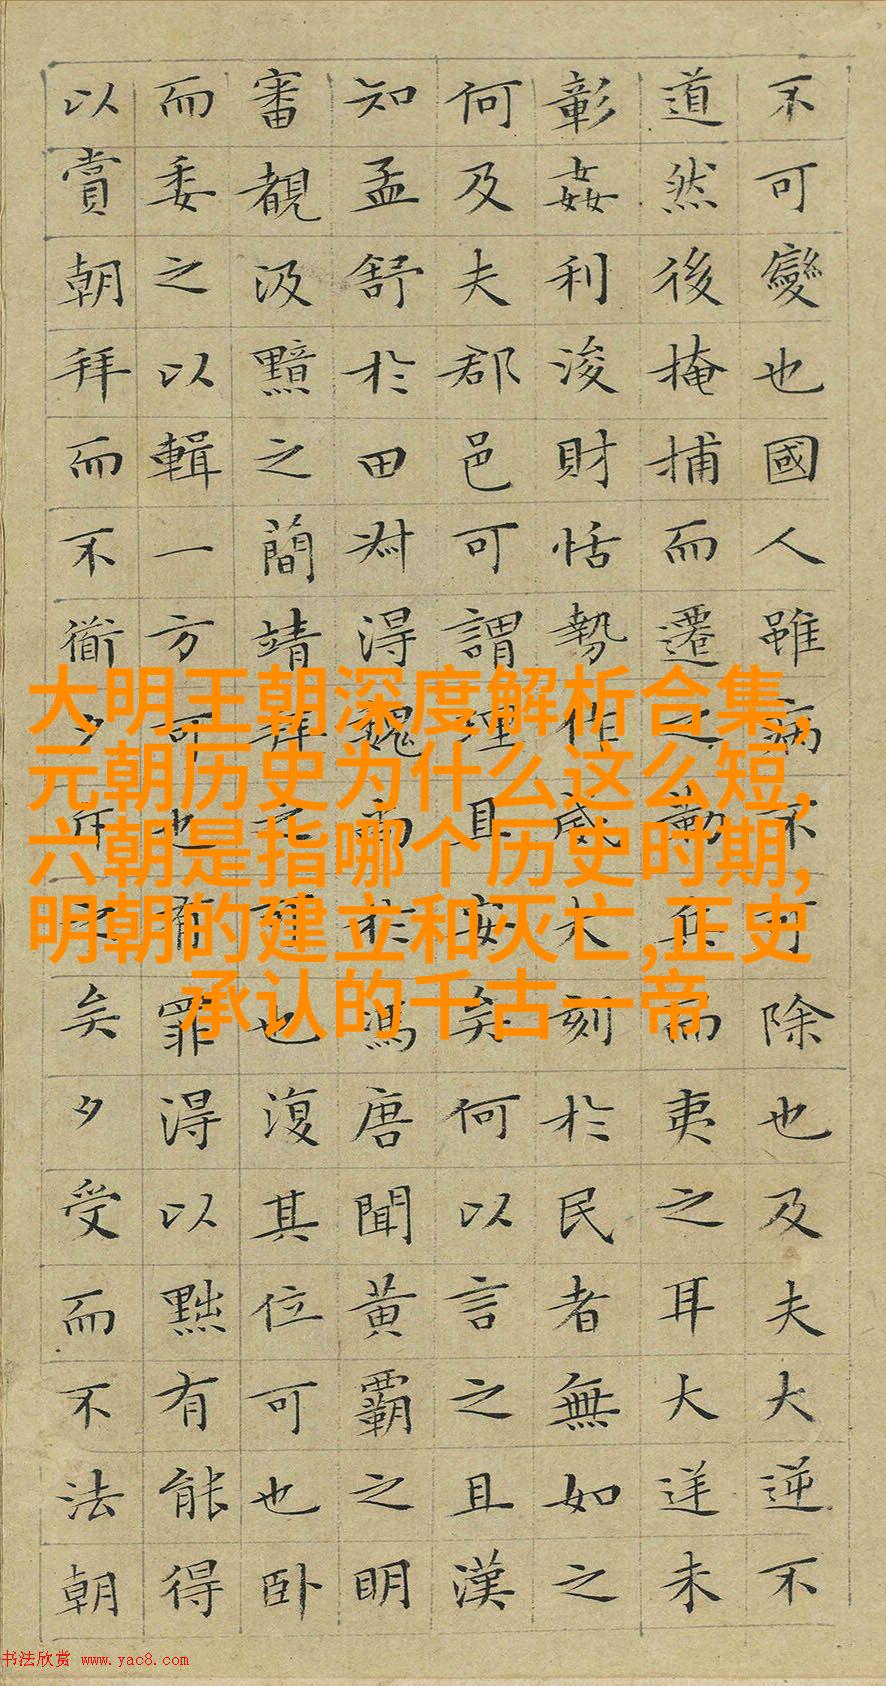 不可變也國人雖病不可除也及夫大逆不
道然後掩捕而遷之勒兵而夷之耳大逆未
彰姦利浚財恬勢作威大刻於民者無如之
何及夫郡邑可謂理且安矣何以言之且漢
知孟舒於田叔得魏尚於馮唐聞黃霸之明
審覩汲黯之簡靖拜之可也復其位可也臥
而委之以輯一方可也有罪得以黜有能得
以賞朝拜而不衜夕斥之矣夕受而不法朝
大明王朝深度解析合集,
元朝历史为什么这么短,
六朝是指哪个历史时期,
明朝的建立和灭亡,正史
承认的千古一帝
书法欣赏 www.yac8.com